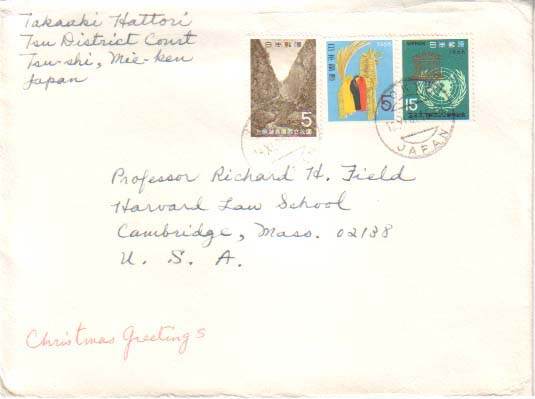 Takaaki Hattori
Tsu District Court
Tsu-shi, Mie-ken
Japan
日本郵便
5
日本郵便
1966
5
NIPPON 日本郵便
1966
15
JAPAN
Professor Richard H. Field
Harvard Law School
Cambridge, Mass. 02138
U. S. A.
Christmas Greetings